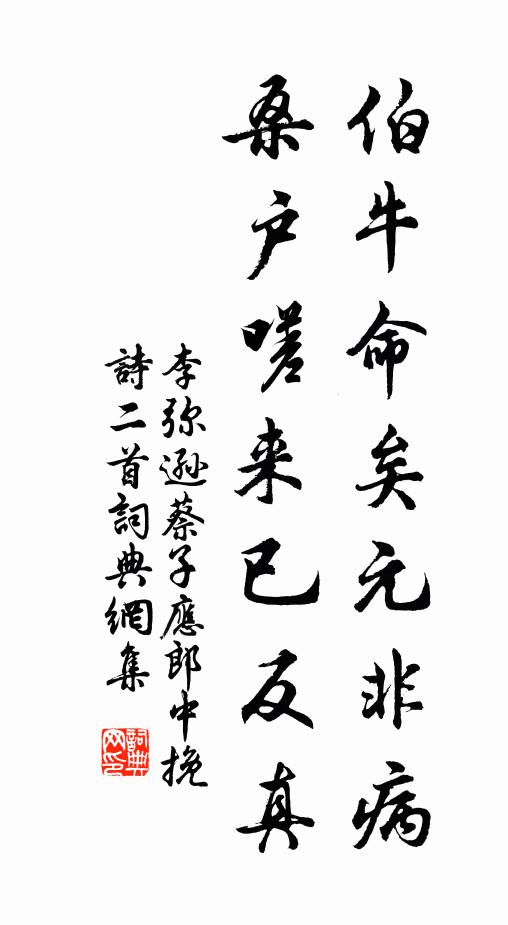 伯牛命矣元非病
桑户嗟来已反真
李弥遜蔡子應郎中挽
詩二首詞典網集
詞典網印